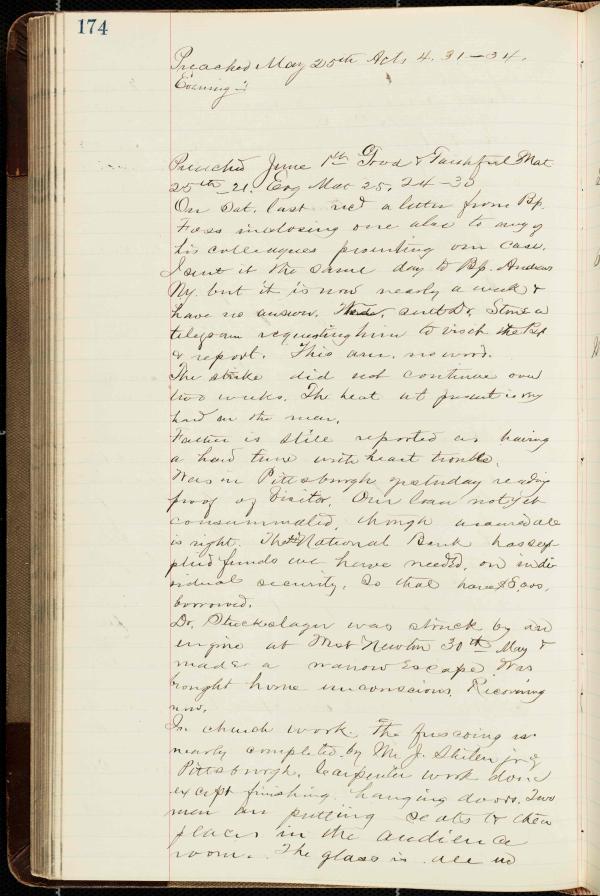 174
Preached May 25th Acts 4. 31-34.
Evening -:
Preached June 1st Good & Faithful Mat
25th 21. Evg Mat 25. 24-30
On Sat. last rec'd a letter from Bp.
Foss inclosing one also to any of
his colleagues presenting our case.
I sent it the same day to Bp. Andrews
Ny. but it is now nearly a week &
have no answer. sent Dr. Stone a
telegram requesting him to visit the Bp
& report. This a.m. no word.
The strike did not continue over
two weeks. The heat at present is very
hard on the men.
Father is still reported as having
a hard time with heart trouble.
Was in Pittsburgh yesterday reading
proof of Visitor. Our loan not yet
consummated, though assured all
is right. The National Bank has sup
plied funds we have needed, on indi
vidual security. So that have $8,000.
borrowed.
Dr. Stuckslager was struck by an
engine at West Newton 30th May &
made a narrow escape. Was
brought home unconscious. Recovering
now.
In church work. The frescoing is
nearly completed by Mr. J. jr of
Pittsburgh. Carpenter work done
except finishing hanging doors. Two
men are putting seats to their
places in the audience
room. The glass is all in